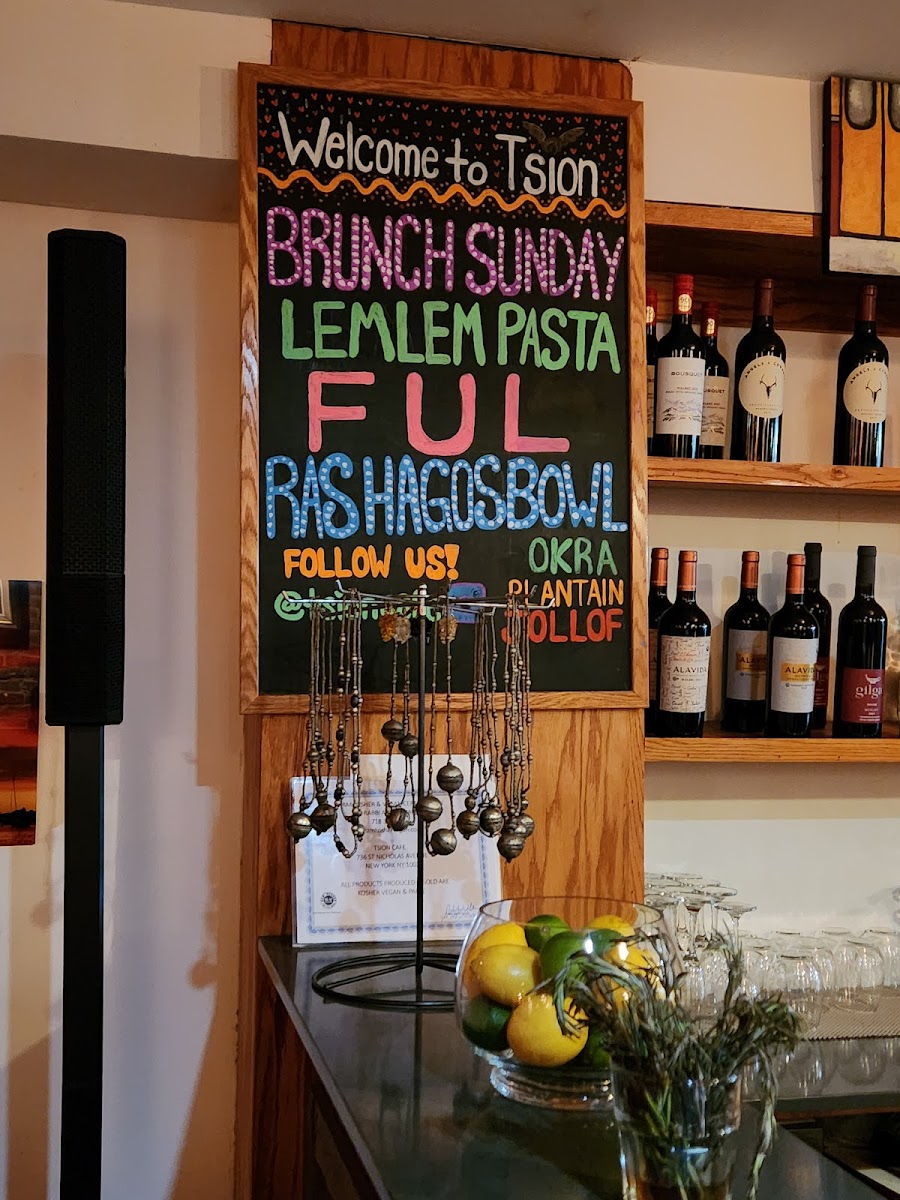 Welcome to Tsion
BRUNCH SUNDAY
LEMLEM PASTA
FUL
RAS HAGOS BOWL
FOLLOW US!
OKRA
PLANTAIN
JOLLOF
BOUSQUET
ALAVIDA
ALAVIDA
gilga
KOSHER &
TSION CAFE
ST NICHOLAS
NEW YORK NY
ALL PRODUCTS PRODUCED
ARE
KOSHER VEGAN &